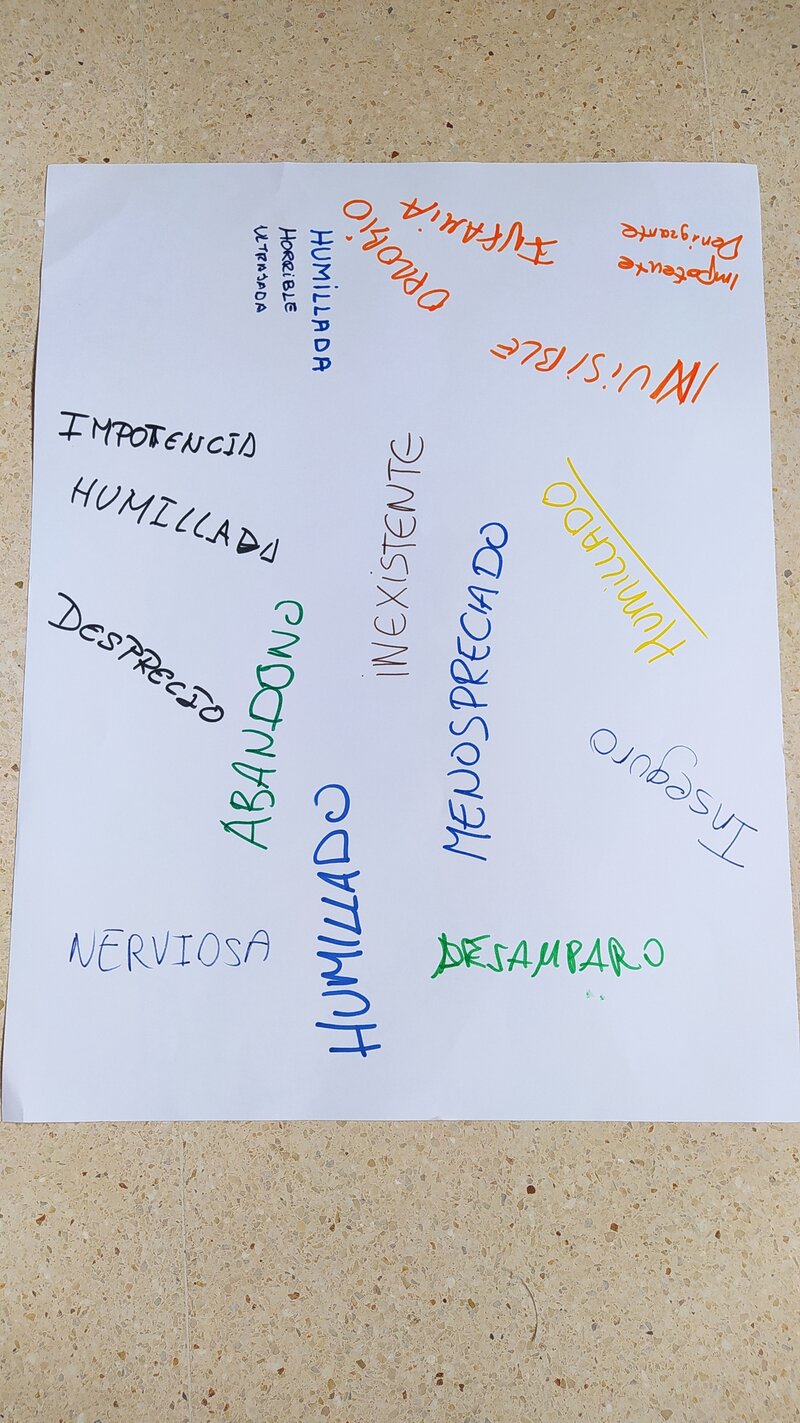 HUMILLADA
HORRIBLE
ULTRAJADA
OPROBIO
INFAMIA
Denigrante
Impotente
INVISIBLE
IMPOTENCIA
HUMILLADA
DESPRECIO
INEXISTENTE
HUMILLADO
MENOSPRECIADO
ABANDONO
Inseguro
HUMILLADO
NERVIOSA
DESAMPARO